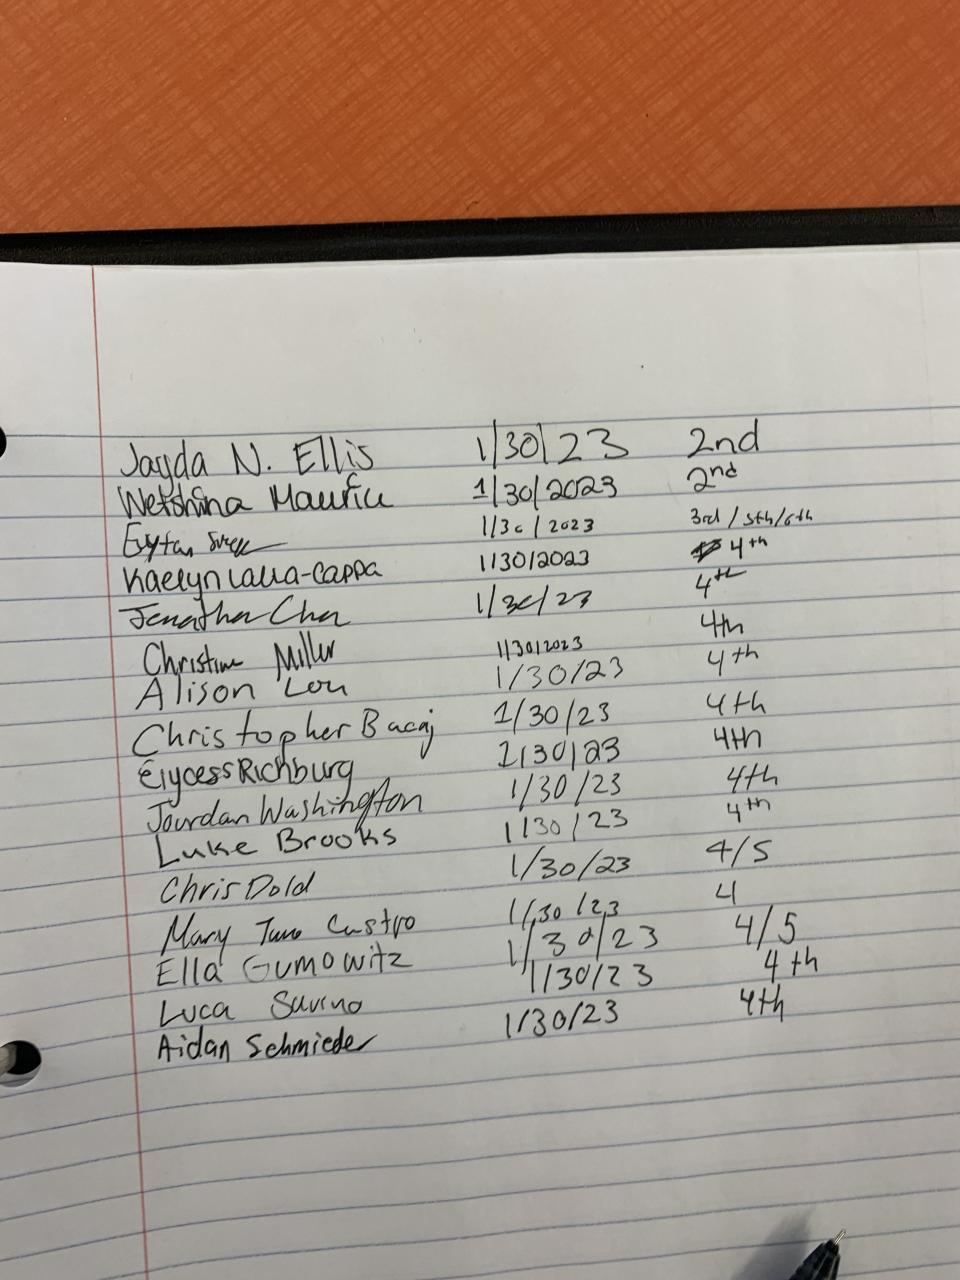 Jayda N. Ellis 1/30/23 2nd
Wetshina Maurice 1/30/2023 2nd
Eytan 1/30/2023 3rd / 5th/6th
Kaelyn Lalla-Cappa 1/30/2023 4th
Jonathan Chen 1/30/23 4th
Christine Miller 1/30/2023 4th
Alison Lou 1/30/23 4th
Christopher Bacaj 1/30/23 4th
Elycess Richburg 1/30/23 4th
Jourdan Washington 1/30/23 4th
Luke Brooks 1/30/23 4th
Chris Dold 1/30/23 4/5
Mary Castro 1/30/23 4
Ella Gumowitz 1/30/23 4/5
Luca Savino 1/30/23 4th
Aidan Schmieder 1/30/23 4th